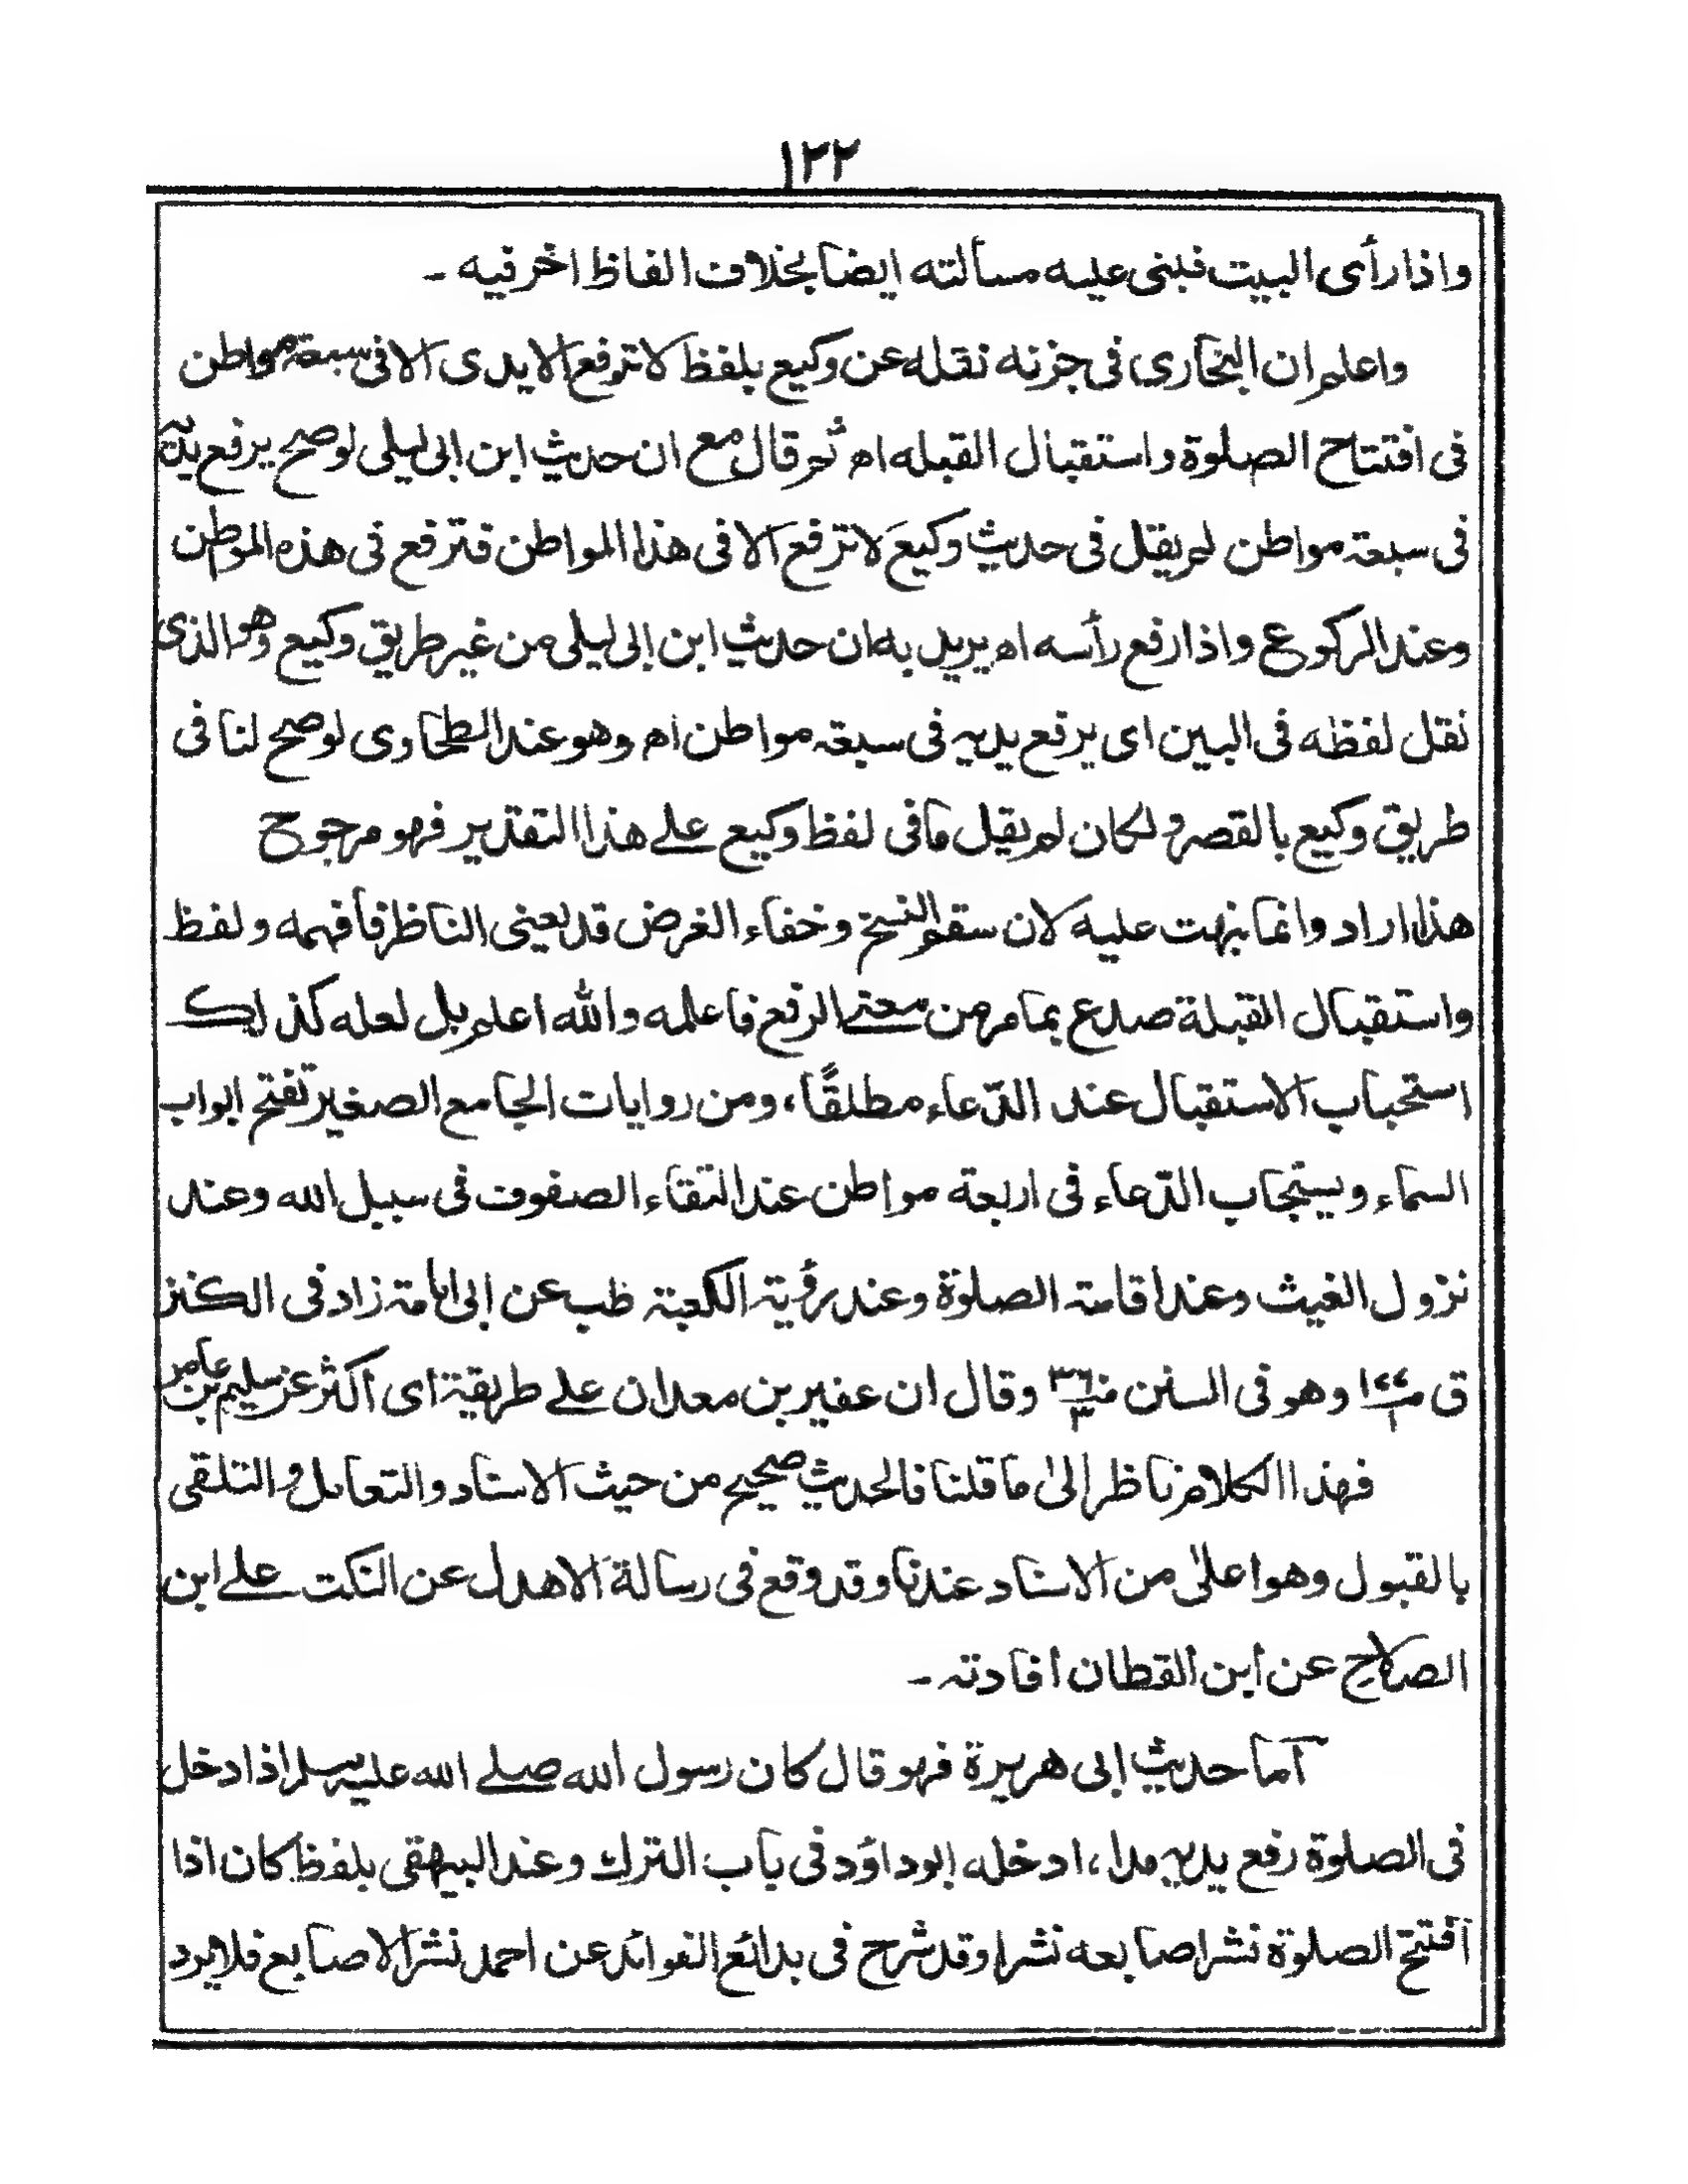 ١٢٢
واذا رأى البيت فبنى عليه مسألته ايضا بخلاف الفاظ اخر فيه ـ
واعلم ان البخارى فى جزئه نقله عن وكيع بلفظ لا ترفع الايدى الا فى سبعة مواطن
فى افتتاح الصلوة واستقبال القبله اه ثم قال مع ان حديث ابن ابى ليلى لو صح يرفع يديه
فى سبعة مواطن لم يقل فى حديث وكيع لا ترفع الا فى هذا المواطن فترفع فى هذه المواطن
وعند الركوع واذا رفع رأسه اه يريد به ان حديث ابن ابى ليلى من غير طريق وكيع وهو الذى
نقل لفظه فى البين اى يرفع يديه فى سبعة مواطن اه وهو عند الطحاوى لو صح لنا فى
طريق وكيع بالقصر ولكان لم يقل ما فى لفظ وكيع على هذا التقدير فهو مرجوح
هذا اراد وانما نبهت عليه لان سقم النسخ وخفاء الغرض قد يعنى الناظر فافهمه ولفظ
واستقبال القبلة صدع بما مر من معنى الرفع فاعلمه والله اعلم بل لعله كذلك
استحباب الاستقبال عند الدّعاء مطلقًا، ومن روايات الجامع الصغير تفتح ابواب
السماء ويستجاب الدّعاء فى اربعة مواطن عند التقاء الصفوف فى سبيل الله وعند
نزول الغيث وعند اقامة الصلوة وعند رؤية الكعبة طب عن ابى امامة زاد فى الكنز
ق مـ١٤٤/١ وهو فى السنن منـ٣٦٠/٣ وقال ان عفير بن معدان على طريقة اى اكثر عن سليم بن عامر
فهذا الكلام ناظر الىٰ ما قلنا فالحديث صحيح من حيث الاسناد والتعامل والتلقى
بالقبول وهو اعلىٰ من الاسناد عندنا وقد وقع فى رسالة الاهدل عن النكت على ابن
الصلاح عن ابن القطان افادته ـ
آما حديث ابى هريرة فهو قال كان رسول الله صلى الله عليه وسلم اذا دخل
فى الصلوة رفع يديه مدا، ادخله ابوداؤد فى باب الترك وعند البيهقى بلفظ كان اذا
افتتح الصلوة نشر اصابعه نشرا وقد شرح فى بدائع الفوائد عن احمد نشر الاصابع فلا يرد